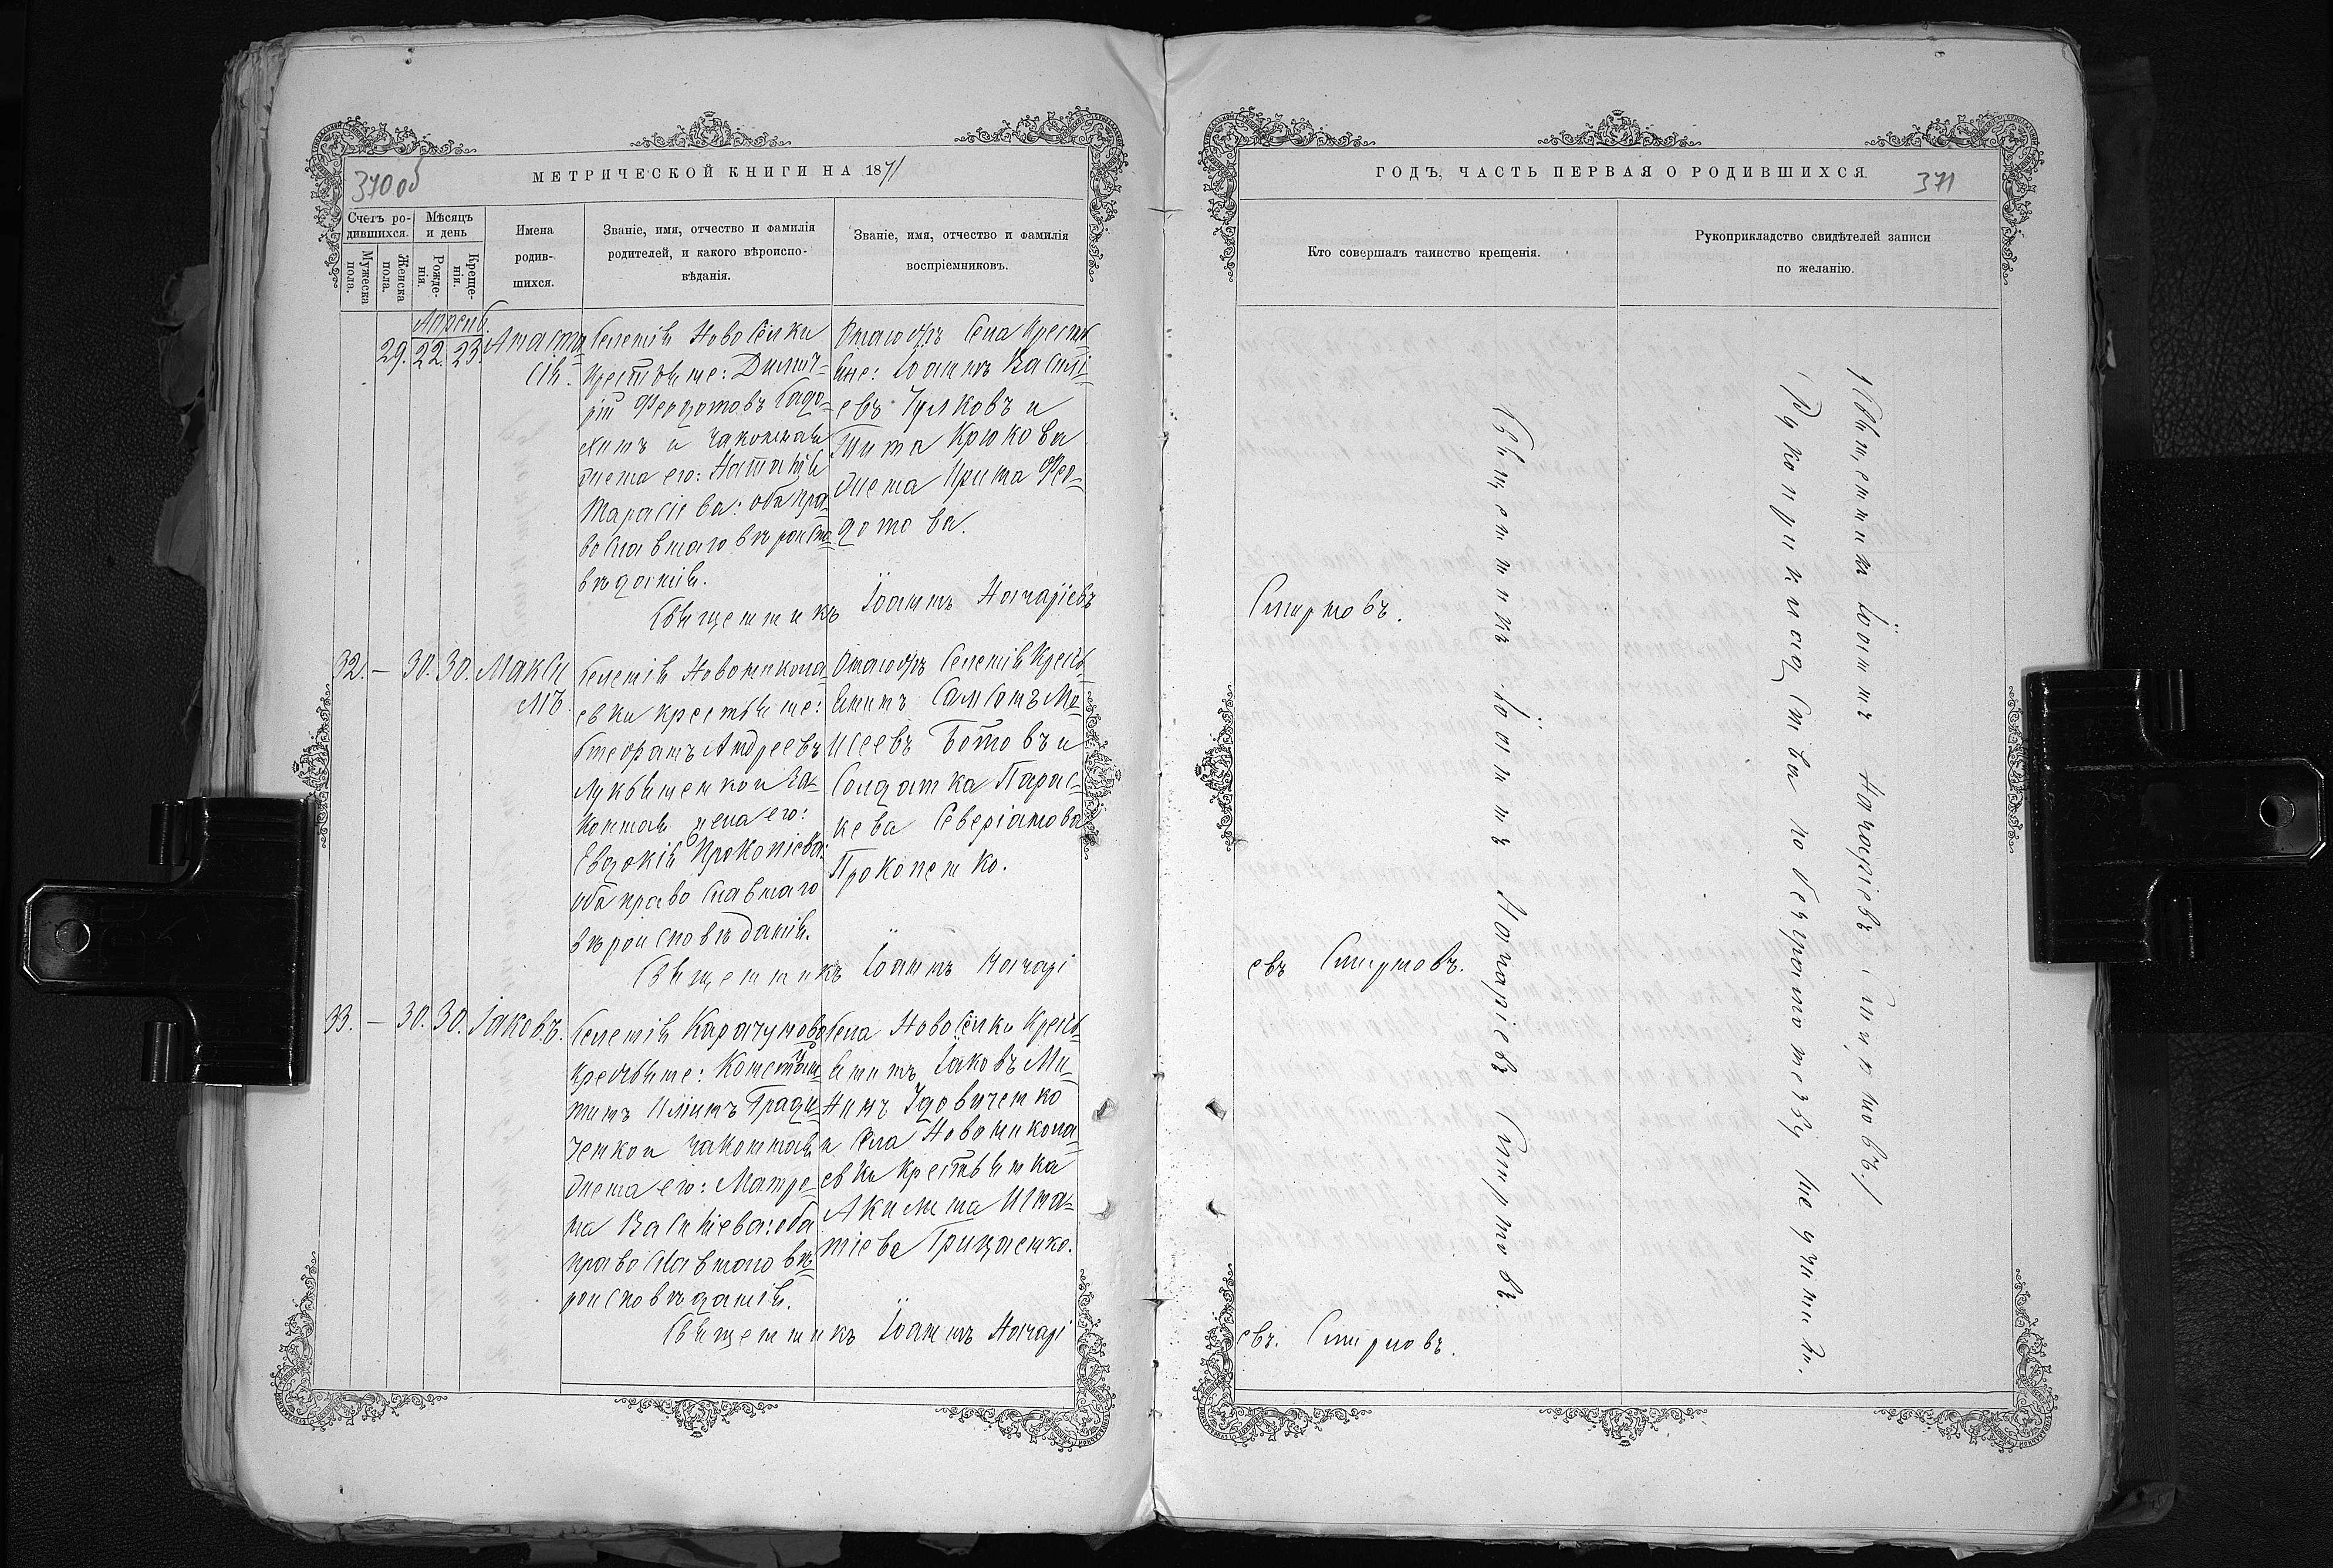 370 об
МЕТРИЧЕСКОЙ КНИГИ НА 1871
Счетъ ро-
дившихся.
Мужеска
пола.
Женска
пола.
Мѣсяцъ
и день
Рожде-
нія.
Креще-
нія.
Имена
родив-
шихся.
Званіе, имя, отчество и фамилія
родителей, и какого вѣроиспо-
вѣданія.
Званіе, имя, отчество и фамилія
воспріемниковъ.
Апрель.
29. 22. 23. Анаста-
сія.
Селенія Новосёлки
крестьяне: Димит-
рій Феодотовъ
и законная
жена его: Наталія
Тарасіева: оба пра-
вославнаго вѣроиспо-
вѣданія.
Тогожъ села кресть-
яне: Іоаннъ Василі-
евъ Гулковъ и
Тита Крюкова
жена Ирина Фео-
дотова.
Священникъ Іоаннъ Назаріевъ
32. — 30. 30. Макси-
мъ.
Селенія Новоникола-
евки крестьяне:
Стефанъ Андреевъ
Лукьяненко и за-
конная жена его:
Евдокія Прокопіева:
оба православнаго
вѣроисповѣданія.
Тогожъ селенія кресть-
янинъ Самсонъ Мо-
исеевъ Ботовъ и
солдатка Парас-
кева Северіанова
Прокопенко.
Священникъ Іоаннъ Назарі
33. — 30. 30. Іаковъ.
Селенія Карачуново
крестьяне: Констан-
тинъ Ильинъ
и законная
жена его: Матро-
на Василіева: оба
православнаго вѣ-
роисповѣданія.
Села Новосёлки кресть-
янинъ Іаковъ Ми-
нинъ Удовиченко
и села Новоникола-
евки крестьянка
Акилина Игна-
тіева Грицаенко.
Священникъ Іоаннъ Назарі
ГОДЪ, ЧАСТЬ ПЕРВАЯ О РОДИВШИХСЯ.
371
Кто совершалъ таинство крещенія.
Рукоприкладство свидѣтелей записи
по желанію.
Смирновъ.
евъ Смирновъ.
евъ. Смирновъ.
Священникъ Іоаннъ Назаріевъ Смирновъ.
Рукоприкладства по безграмотству не учинили.
/Священникъ Іоаннъ Назаріевъ Смирновъ./